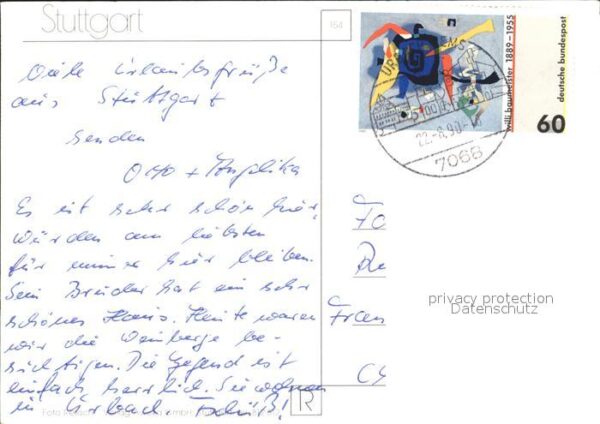 Stuttgart
164
Viele Urlaubsgrüße
aus Stuttgart
senden
Otto + Angelika
Es ist sehr schön hier,
würden am liebsten
für immer hier bleiben.
Sein Bruder hat ein sehr
schönes Haus. Heute waren
wir die Weinberge be-
sichtigen. Die Gegend ist
einfach herrlich. Sie wohnen
in Urbach. Tschüß!
willi baumeister 1889-1955
deutsche bundespost
60
22.-8.90
7068
Fran
privacy protection
Datenschutz
Foto
R